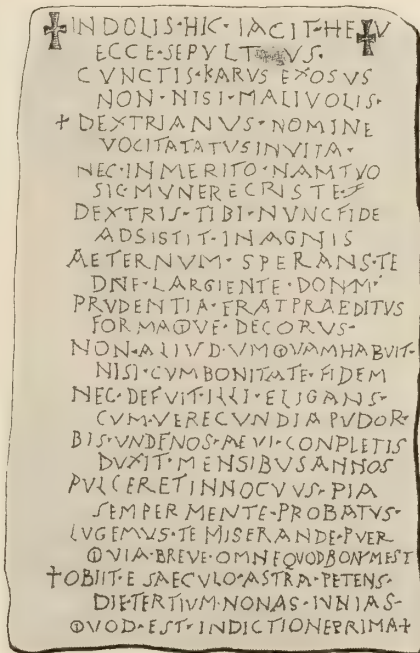 ✝INDOLIS·HIC·IACIT·HE V✝
ECCE·SEPULT VS·
CVNCTIS·KARVS EXOSVS
NON·NISI·MALIVOLIS·
+DEXTRIANVS·NOMINE
VOCITATATVSINVITA·
NEC·INMERITO·NAMTVO
SIC·MVNERECRISTE·
DEXTRIS·TIBI·NVNCFIDE
ADSISTIT·INAGNIS
AETERNVM·SPERANS·TE
DNE·LARGIENTE·DONM·
PRVDENTIA·FRATPRAEDITVS
FORMAQVE·DECORVS·
NON·ALIVD·VMQVAMHABVIT·
NISI·CVMBONITATE·FIDEM
NEC·DEFVIT·ILLI·ELIGANS·
CVM·VERECVNDIA PVDOR·
BIS·VNDENOS·AEVI·CONPLETIS
DVXIT·MENSIBVSANNOS
PVLCERETINNOCVVS·PIA
SEMPER MENTE·PROBATVS·
LVGEMVS·TE MISERANDE·PVER
QVIA·BREVE·OMNEQVODBONMEST
✝OBIIT·E SAECVLO·ASTRA·PETENS·
DIE·TERTIVM·NONAS·IVNIAS·
QVOD·EST·INDICTIONEPRIMA+